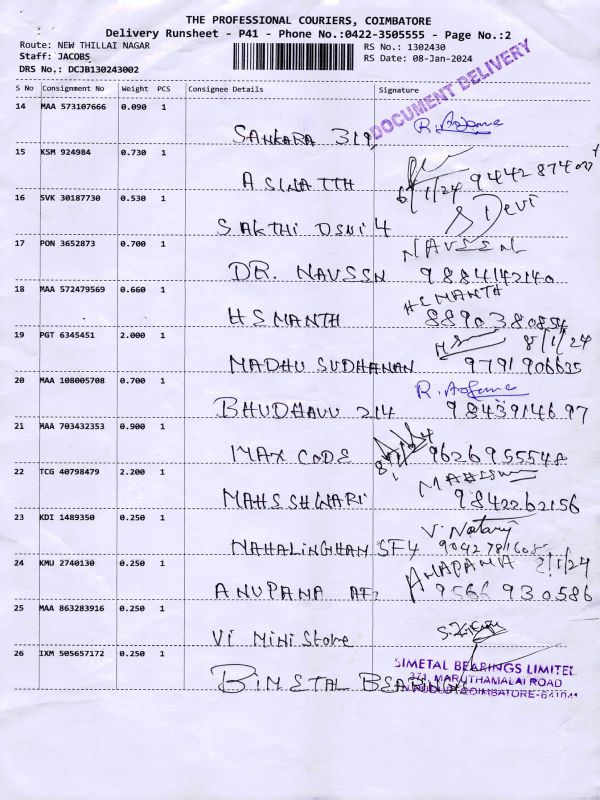 THE PROFESSIONAL COURIERS, COIMBATORE
Delivery Runsheet - P41 - Phone No.:0422-3505555 - Page No.:2
Route: NEW THILLAI NAGAR
RS No.: 1302430
Staff: JACOBS
RS Date: 08-Jan-2024
DRS No.: DCJB130243002
DOCUMENT DELIVERY
S No Consignment No Weight PCS Consignee Details Signature
14 MAA 573107666 0.090 1
SANKARA 319
15 KSM 924984 0.730 1
ASWATTH 6/1/24
16 SVK 30187730 0.530 1
SAKTHI DEVI 4 S Devi
17 PON 3652873 0.700 1 NAVEEN
DR. NAVEEN 9884142140
18 MAA 572479569 0.660 1 HEMANTH
HEMANTH 8890380854
19 PGT 6345451 2.000 1 8/1/24
MADHU SUDHANAN 9791906635
20 MAA 108005708 0.700 1
BHUDHAVU 214 9843914697
21 MAA 703432353 0.900 1
MAX CODE 9626955548
22 TCG 40798479 2.200 1
MAHESHWARI 9842262156
23 KDI 1489350 0.250 1
MAHALINGHAN SF4
24 KMU 2740130 0.250 1
ANUPANA AF2 9566930586
25 MAA 863283916 0.250 1
Vi Mini Store
26 IXM 505657172 0.250 1
BIMETAL BEARINGS
BIMETAL BEARINGS LIMITED
371, MARUTHAMALAI ROAD
COIMBATORE-641041